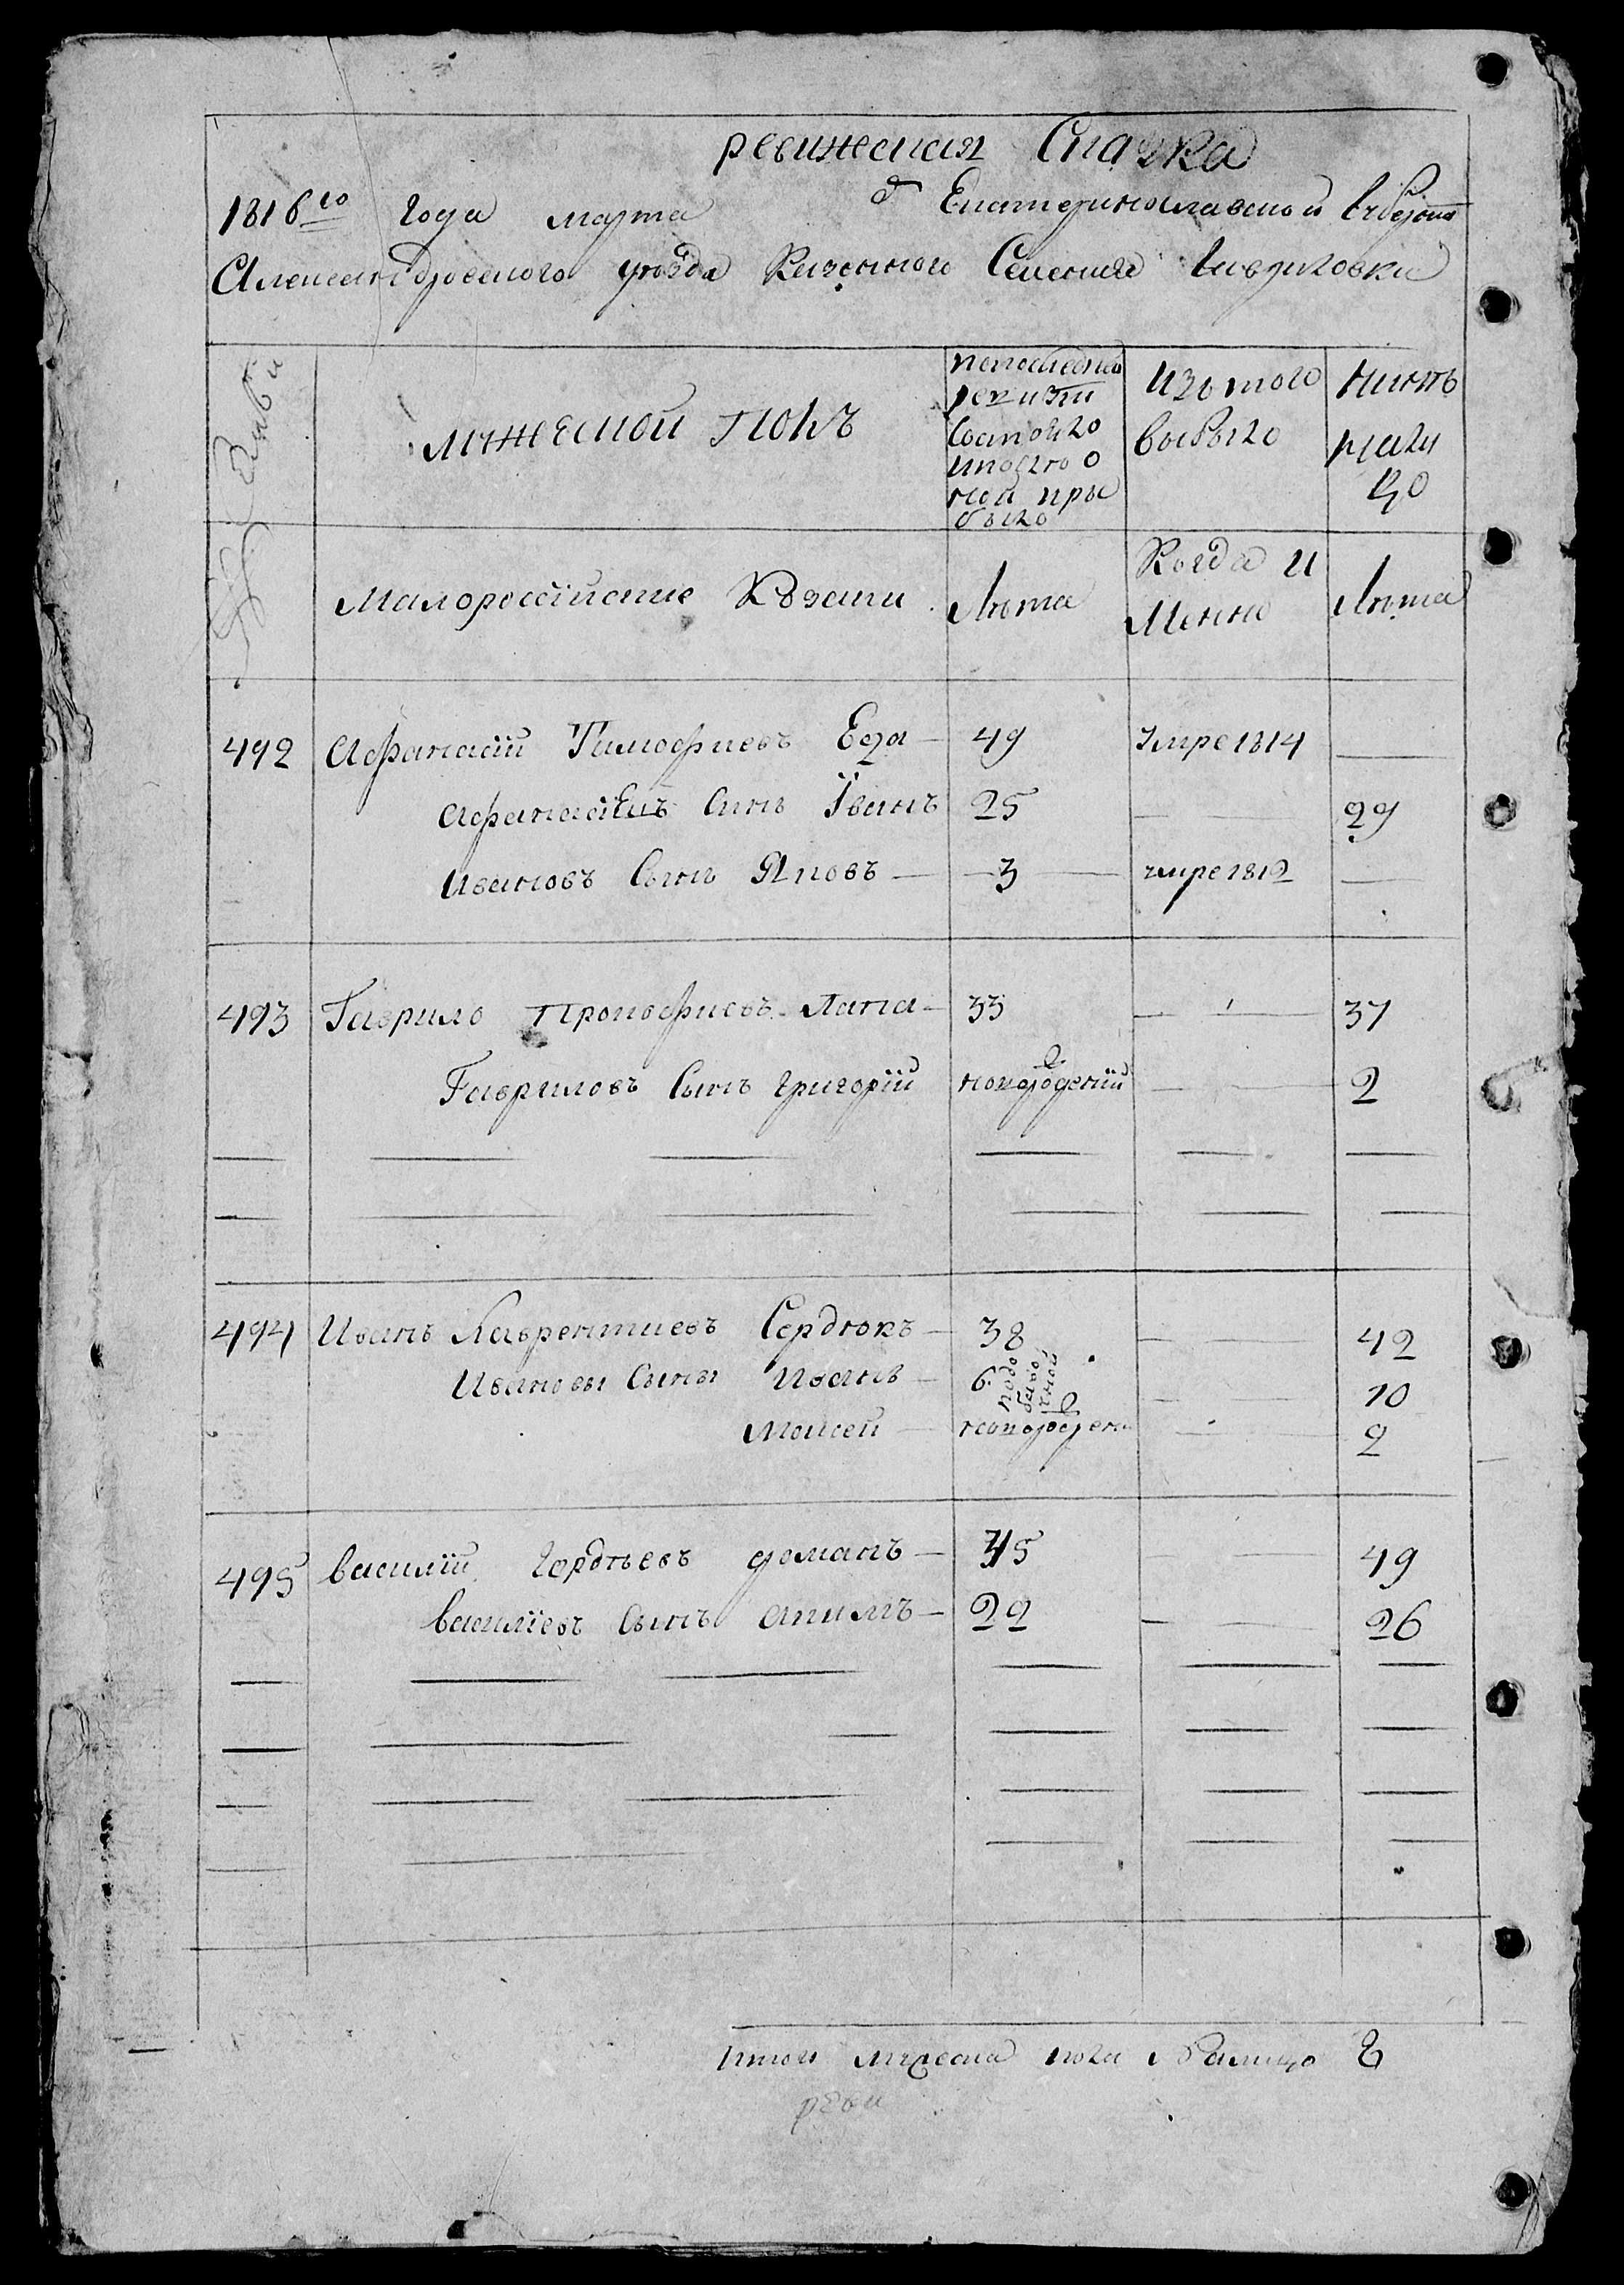 ревижская Сказка
1816го года марта д Екатеринославской губерни
Александровского уезда Казенного Селения Гавриловки
мужеской полъ
попоследней ревизии состояло и после оной прибыло
Изъ того выбыло
ныне налицо
Малороссийские Козаки
Лета
Когда И Менно
Лета
492 Афанасий Тимофиевъ Еда 49 умре 1814
Афанасиевъ Синъ Їванъ 25 29
Ивановъ Сынъ Яковъ 3 умре 1812
493 Гаврило Прокофиевъ Лата 33 37
Гавриловъ Сынъ Григорий новорождений 2
494 Иванъ Лаврентиевъ Сердюкъ 38 42
Ивановы Сины Иванъ 6 10
Мойсей новорожден 2
495 василий Гордѣевъ доманъ 45 49
василиевъ Сынъ акимъ 22 26
Итого мужеска пола Налицо 8
реви